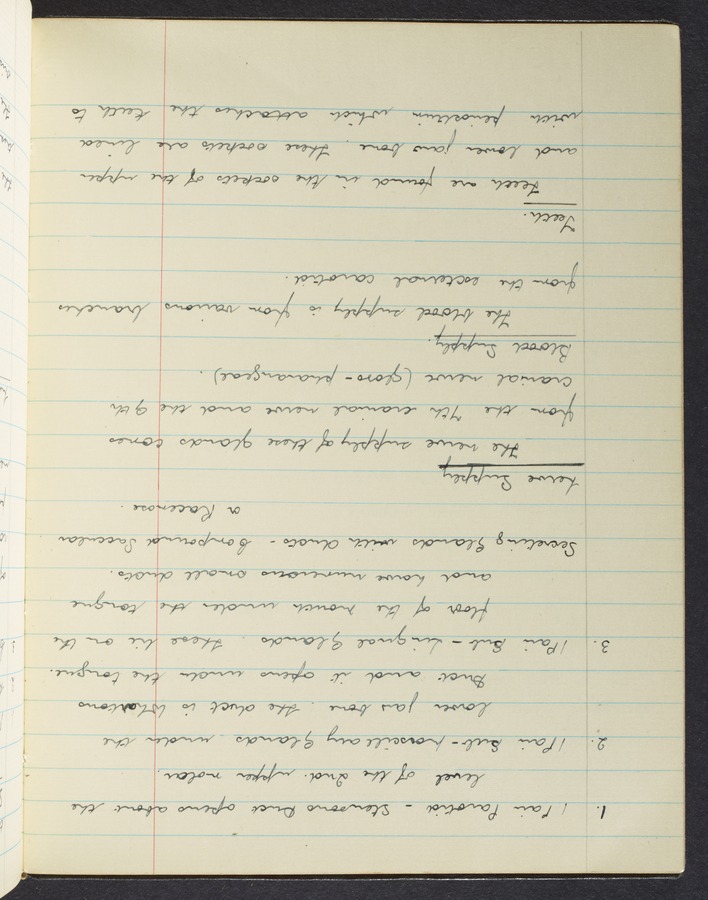 1. 1 Pair Parotid - Stensons Duct opens about the
level of the 2nd. upper molar.
2. 1 Pair Sub-maxillary Glands under the
lower jaw bone. The duct is Whartons
Duct and it opens under the tongue.
3. 1 Pair Sub-Lingual Glands. These lie on the
floor of the mouth under the tongue
and have numerous small ducts.
Secreting Glands with ducts - Compound Saccular
or Racemose.
Nerve Supply
The nerve supply of these glands comes
from the 7th cranial nerve and the 9th
cranial nerve (gloss-pharangeal).
Blood Supply.
The blood supply is from various branches
from the external carotid.
Teeth.
Teeth are found in the sockets of the upper
and lower jaw bone. These sockets are lined
with periostium which attaches the teeth to